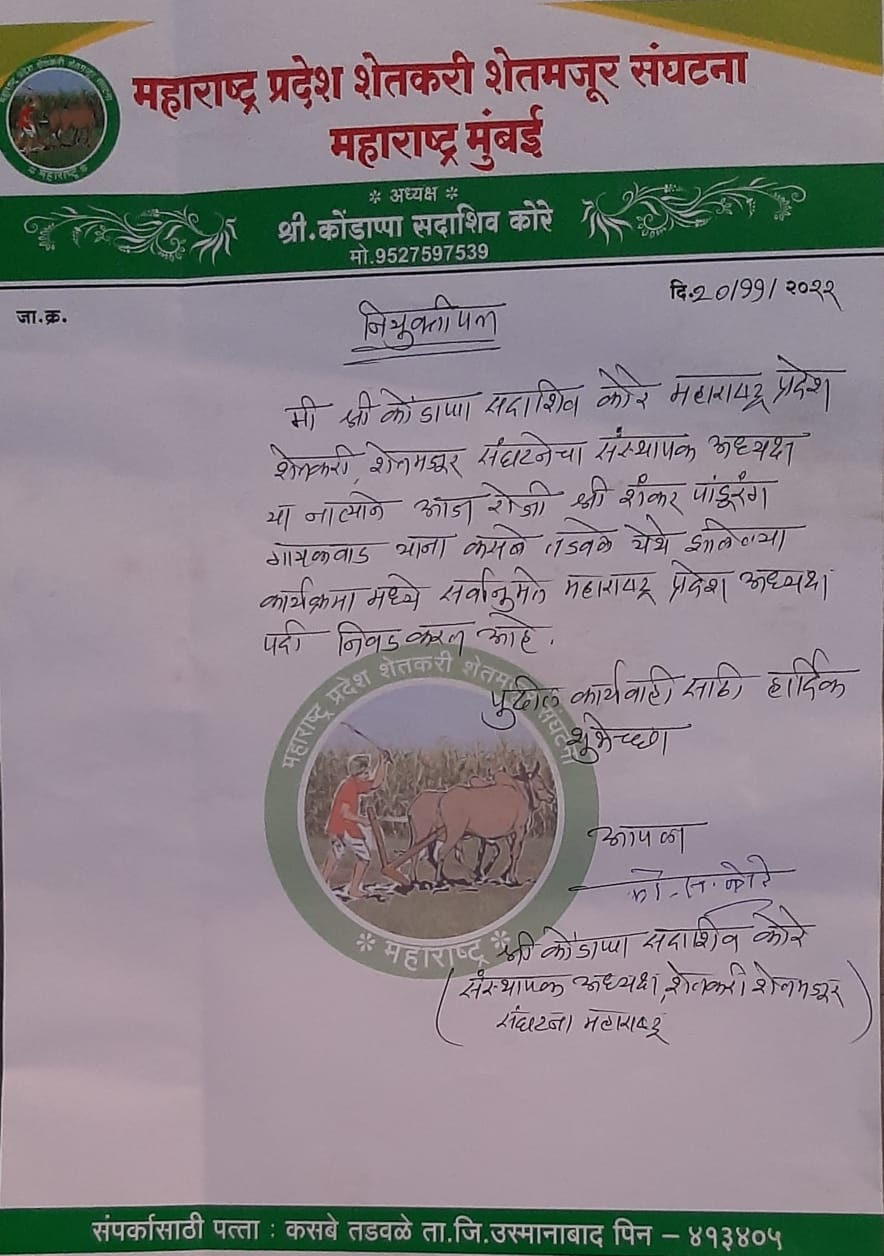 महाराष्ट्र प्रदेश शेतकरी शेतमजूर संघटना
महाराष्ट्र मुंबई
* अध्यक्ष *
श्री.कोंडाप्पा सदाशिव कोरे
मो.9527597539
जा.क्र.
दि.२०/११/२०२२
नियुक्तीपत्र
मी श्री कोंडाप्पा सदाशिव कोरे महाराष्ट्र प्रदेश
शेतकरी, शेतमजूर संघटनेचा संस्थापक अध्यक्ष
या नात्याने आज रोजी श्री शंकर पांडूरंग
गायकवाड याना कसबे तडवळे येथे झालेल्या
कार्यक्रमा मध्ये सर्वानुमते महाराष्ट्र प्रदेश अध्यक्ष
पदी निवड करत आहे.
पुढील कार्यवाही साठी हार्दिक
शुभेच्छा
आपका
को. स. कोरे
श्री कोंडाप्पा सदाशिव कोरे
(संस्थापक अध्यक्ष, शेतकरी शेतमजूर
संघटना महाराष्ट्र)
महाराष्ट्र प्रदेश शेतकरी शेतमजूर संघटना
* महाराष्ट्र *
संपर्कासाठी पत्ता : कसबे तडवळे ता.जि.उस्मानाबाद पिन – ४१३४०५